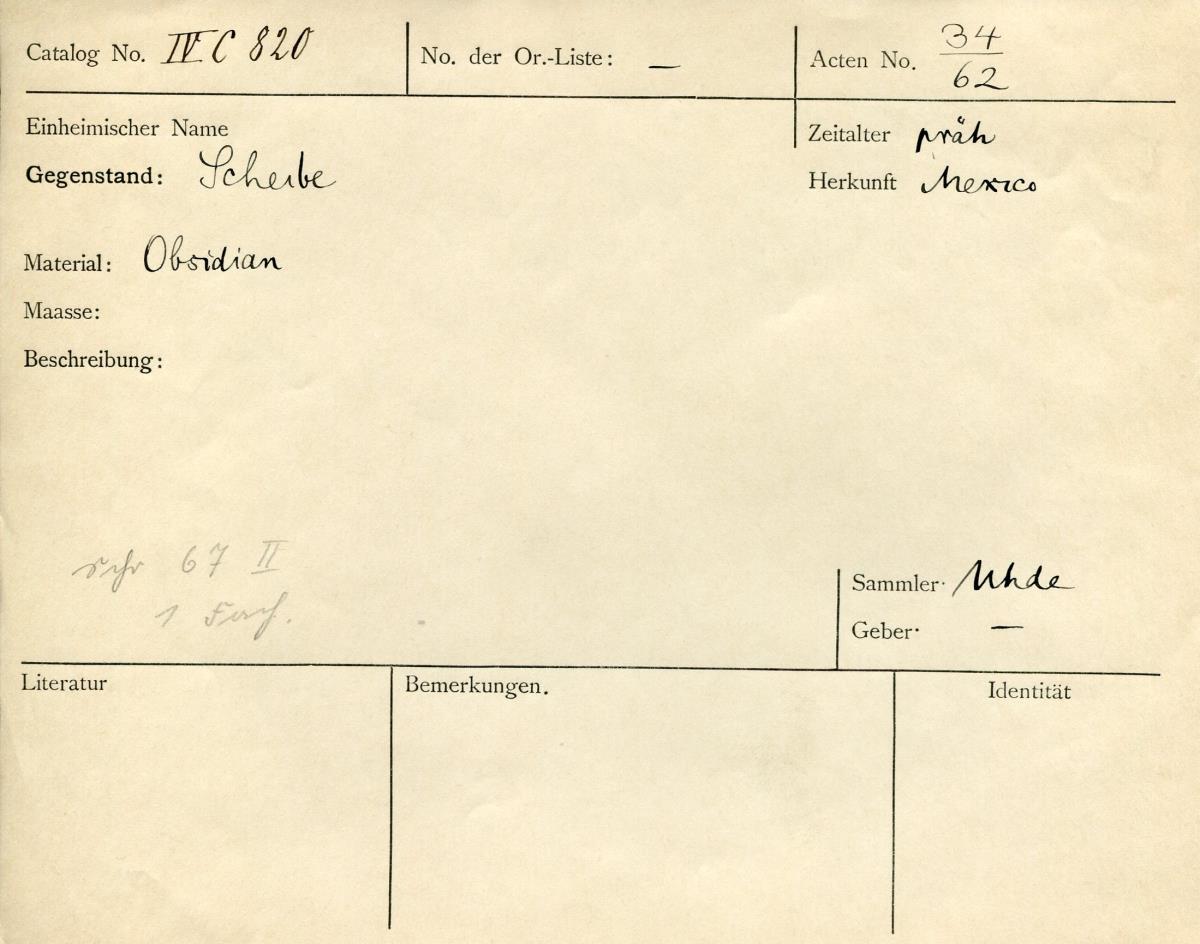 Catalog No. IV C 820 No. der Or.-Liste: — Acten No. 34/62
Einheimischer Name Zeitalter präh
Gegenstand: Scheibe Herkunft Mexico
Material: Obsidian
Maasse:
Beschreibung:
Schr 67 II
1 Fach.
Sammler Uhde
Geber —
Literatur Bemerkungen. Identität